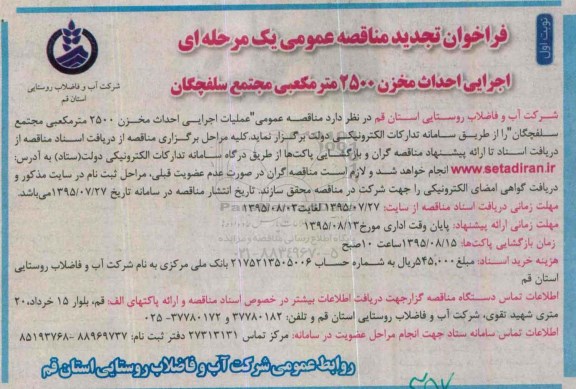 نوبت اول
فراخوان تجدید مناقصه عمومی یک مرحله ای
اجرایی احداث مخزن ۲۵۰۰ مترمکعبی مجتمع سلفچگان
شرکت آب و فاضلاب روستایی
استان قم
شرکت آب و فاضلاب روستایی استان قم در نظر دارد مناقصه عمومی"عملیات اجرایی احداث مخزن ۲۵۰۰ مترمکعبی مجتمع
سلفچگان"را از طریق سامانه تدارکات الکترونیکی دولت برگزار نماید.کلیه مراحل برگزاری مناقصه از دریافت اسناد مناقصه از
دریافت اسناد تا ارائه پیشنهاد مناقصه گران و بازگشایی پاکت‌ها از طریق درگاه سامانه تدارکات الکترونیکی دولت(ستاد) به آدرس:
www.setadiran.ir انجام خواهد شد و لازم است مناقصه گران در صورت عدم عضویت قبلی، مراحل ثبت نام در سایت مذکور و
دریافت گواهی امضای الکترونیکی را جهت شرکت در مناقصه محقق سازند. تاریخ انتشار مناقصه در سامانه تاریخ ۱۳۹۵/۰۷/۲۷می‌باشد.
مهلت زمانی دریافت اسناد مناقصه از سایت: ۱۳۹۵/۰۷/۲۷ لغایت۱۳۹۵/۰۸/۰۳
مهلت زمانی ارائه پیشنهاد: پایان وقت اداری مورخ۱۳۹۵/۰۸/۱۳
زمان بازگشایی پاکت‌ها: ۱۳۹۵/۰۸/۱۵ ساعت ۱۰صبح
هزینه خرید اسناد: مبلغ۵۴۵,۰۰۰ریال به شماره حساب ۲۱۷۵۲۱۳۵۰۵۰۰۶ بانک ملی مرکزی به نام شرکت آب و فاضلاب روستایی
استان قم
اطلاعات تماس دستگاه مناقصه گزارجهت دریافت اطلاعات بیشتر در خصوص اسناد مناقصه و ارائه پاکتهای الف: قم، بلوار ۱۵ خرداد،۲۰
متری شهید تقوی، شرکت آب و فاضلاب روستایی استان قم و تلفن: ۳۷۷۸۰۱۸۲ و ۳۷۷۸۰۱۷۲- ۰۲۵
اطلاعات تماس سامانه ستاد جهت انجام مراحل عضویت در سامانه: مرکز تماس ۲۷۳۱۳۱۳۱ دفتر ثبت نام: ۸۸۹۶۹۷۳۷ -۸۵۱۹۳۷۶۸
روابط عمومی شرکت آب و فاضلاب روستایی استان قم